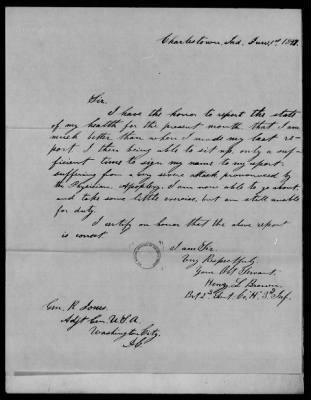 Charlestown, Ind. June 1st
Sir.
I have the honor to report the state
of my health for the present month that I am
much better than when I made my last re-
port I then being able to sit up, only a suf-
ficient time to sign my name to my report.
suffering from a very severe attack pronounced by
the Physician Apoplexy. I am now able to go about,
and take some little exercise, but am still unable
for duty.
I certify on honor that the above report
is correct
I am Sir.
Very Respectfully
Your Obt Servant.
Henry L Brown
Bvt 2d Lieut. Co. H. 3d Inf.
Gen. R Jones.
Adjt Gen. U.S.A.
Washington City.
D.C.